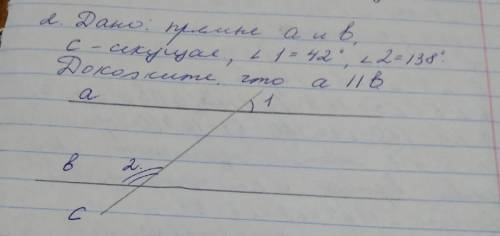 2. Дано: прямые a и b,
c - секущая, ∠1=42°, ∠2=138°.
Докажите, что a || b
a
1
b
2
c